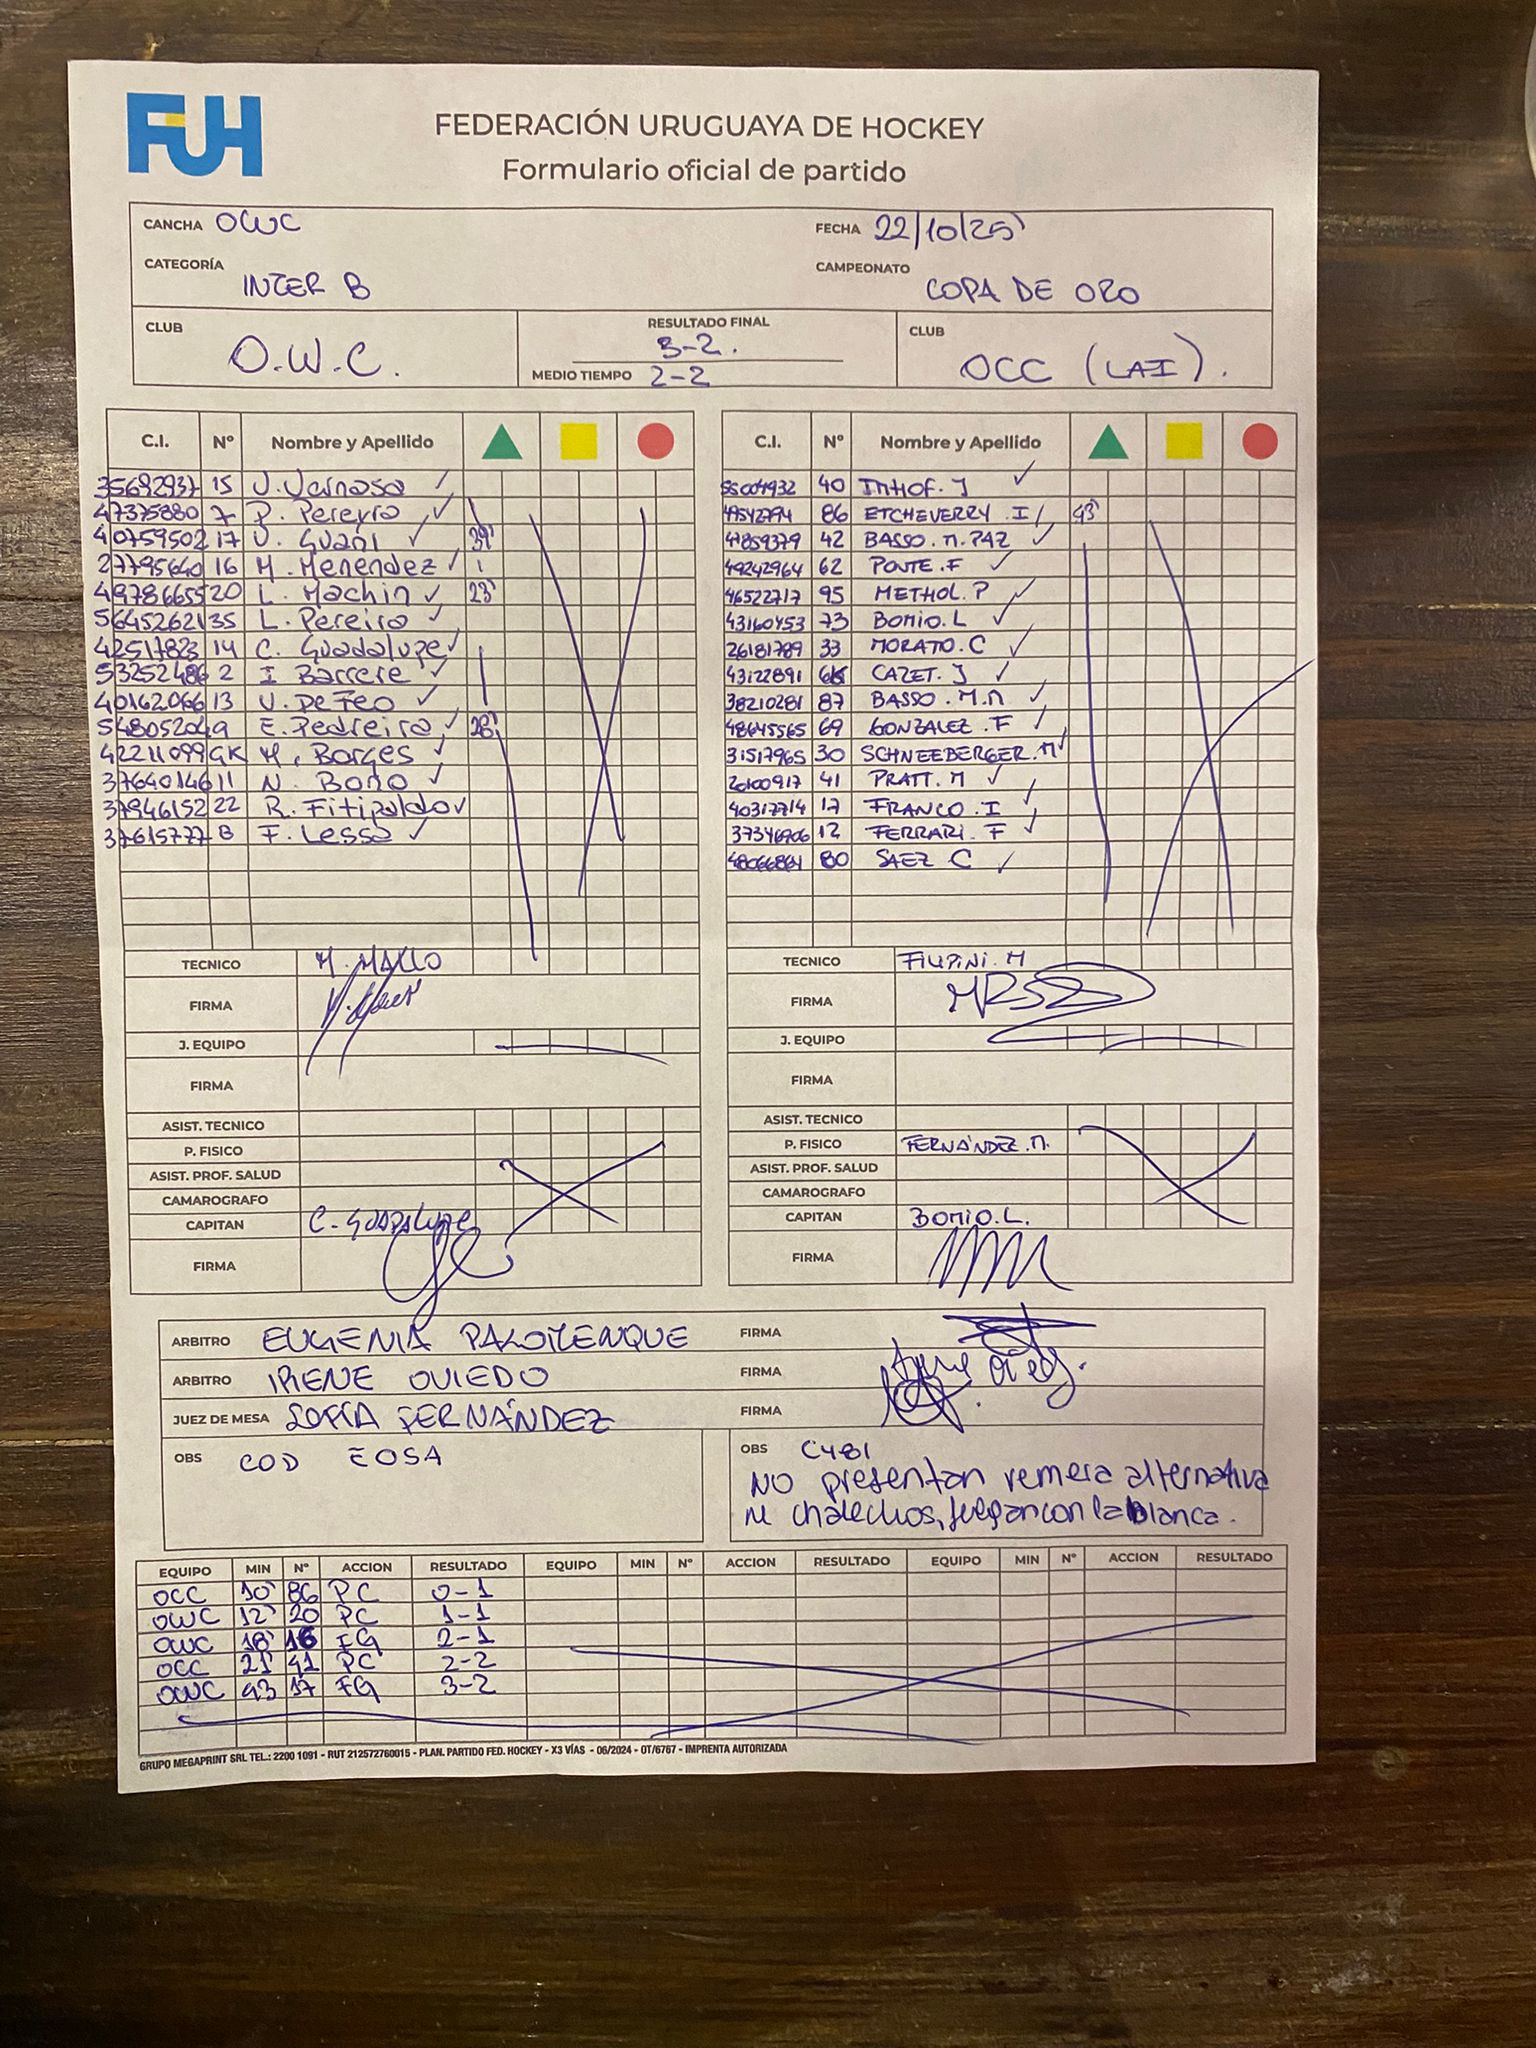 FUH
FEDERACIÓN URUGUAYA DE HOCKEY
Formulario oficial de partido
CANCHA OWC FECHA 22/10/25
CATEGORÍA INTER B CAMPEONATO COPA DE ORO
CLUB O.W.C. RESULTADO FINAL 3-2. CLUB OCC (LAI).
MEDIO TIEMPO 2-2
C.I. Nº Nombre y Apellido
35692937 15 V. Vernosa
47375880 7 P. Pereyra
40759502 17 V. Guani 39'
27795640 16 M. Menendez
49786655 20 L. Machin 23'
56452621 35 L. Pereira
42517823 14 C. Guadalupe
53252486 2 I Barrere
40162066 13 V. De Feo
54805204 9 E. Pedreira 28'
42211099 GK M. Borges
37640146 11 N. Bono
37946152 22 R. Fitipaldo
37615777 8 F. Lessa
TECNICO M. MALLO
FIRMA
J. EQUIPO
FIRMA
ASIST. TECNICO
P. FISICO
ASIST. PROF. SALUD
CAMAROGRAFO
CAPITAN C. GUADALUPE
FIRMA
C.I. Nº Nombre y Apellido
55004932 40 IMHOF. J
49542794 86 ETCHEVERRY. I 43'
47859379 42 BASSO. M. PAZ
49242964 62 PONTE. F
46522717 95 METHOL. P
43160453 73 BOMIO. L
26181789 33 MORATO. C
43122891 CAZET. J
38210281 87 BASSO. M.M
48645565 69 GONZALEZ. F
31517965 30 SCHNEEBERGER. M
20100917 41 PRATT. M
40317714 17 FRANCO. I
37346906 12 FERRARI. F
80 SAEZ C
TECNICO FILIPINI. M
FIRMA
J. EQUIPO
FIRMA
ASIST. TECNICO
P. FISICO FERNÁNDEZ. M.
ASIST. PROF. SALUD
CAMAROGRAFO
CAPITAN BOMIO. L.
FIRMA
ARBITRO EUGENIA PALOMENQUE FIRMA
ARBITRO IRENE OVIEDO FIRMA
JUEZ DE MESA SOFÍA FERNÁNDEZ FIRMA
OBS COD EOSA
OBS C481
NO presentan remera alternativa
ni chalechos, juegan con la blanca.
EQUIPO MIN Nº ACCION RESULTADO EQUIPO MIN Nº ACCION RESULTADO EQUIPO MIN Nº ACCION RESULTADO
OCC 10' 86 PC 0-1
OWC 12' 20 PC 1-1
OWC 18' 16 FG 2-1
OCC 21' 41 PC 2-2
OWC 43 17 FG 3-2
GRUPO MEGAPRINT SRL TEL.: 2200 1091 - RUT 212572760015 - PLAN. PARTIDO FED. HOCKEY - X3 VÍAS - 06/2024 - OT/6767 - IMPRENTA AUTORIZADA